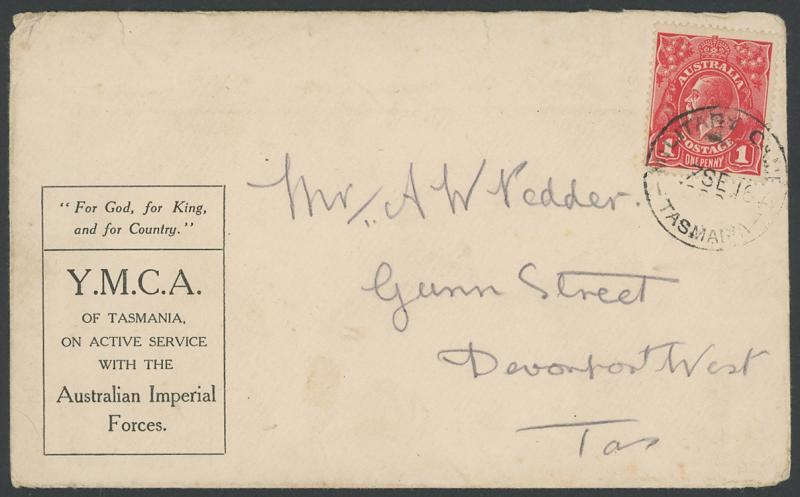 "For God, for King,
and for Country."
Y.M.C.A.
OF TASMANIA,
ON ACTIVE SERVICE
WITH THE
Australian Imperial
Forces.
AUSTRALIA
1 POSTAGE 1
ONE PENNY
MILITARY CAMP
7 SE 16
TASMANIA
Mr. A W Nedder.
Gunn Street
Devonport West
Tas